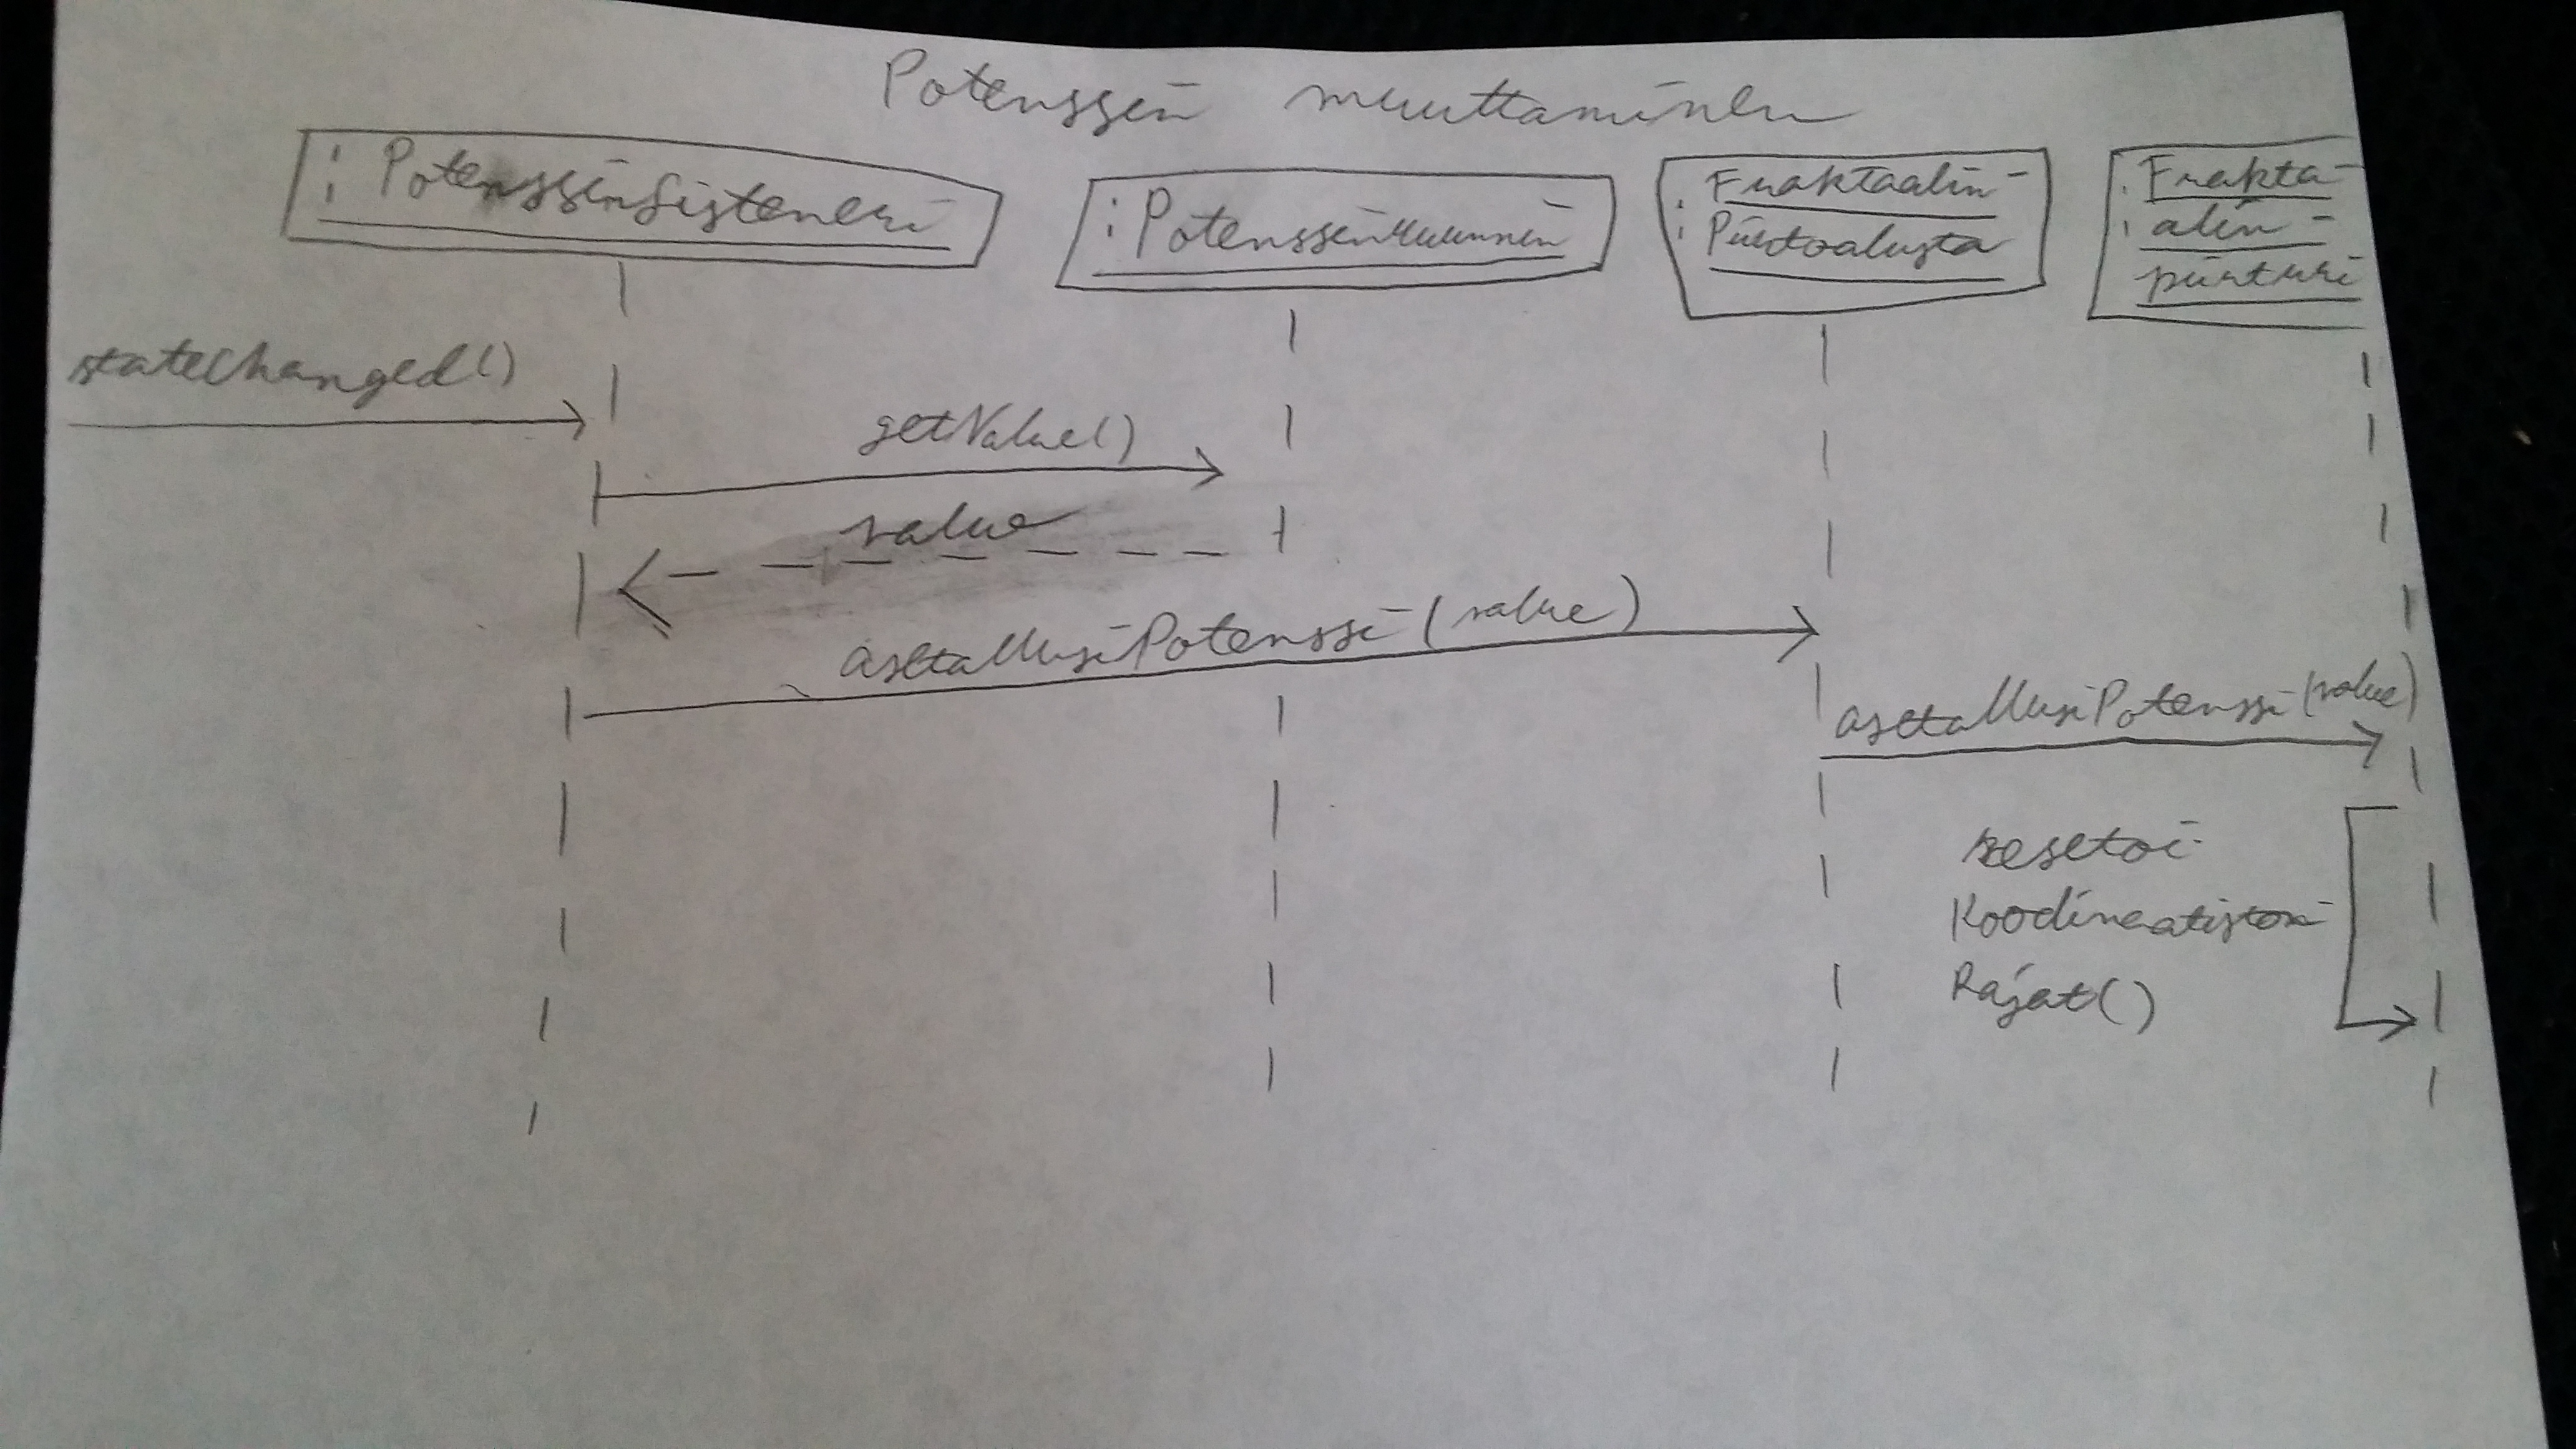 Potenssin muuttaminen
: PotenssinListeneri
: Potenssin
: Fraktaalin-
Piirtoalusta
: Frakta-
alin-
piirturi
stateChanged()
getValue()
value
asetaUusiPotenssi(value)
asetaUusiPotenssi(value)
resetoi
Koodinaatiston
Rajat()